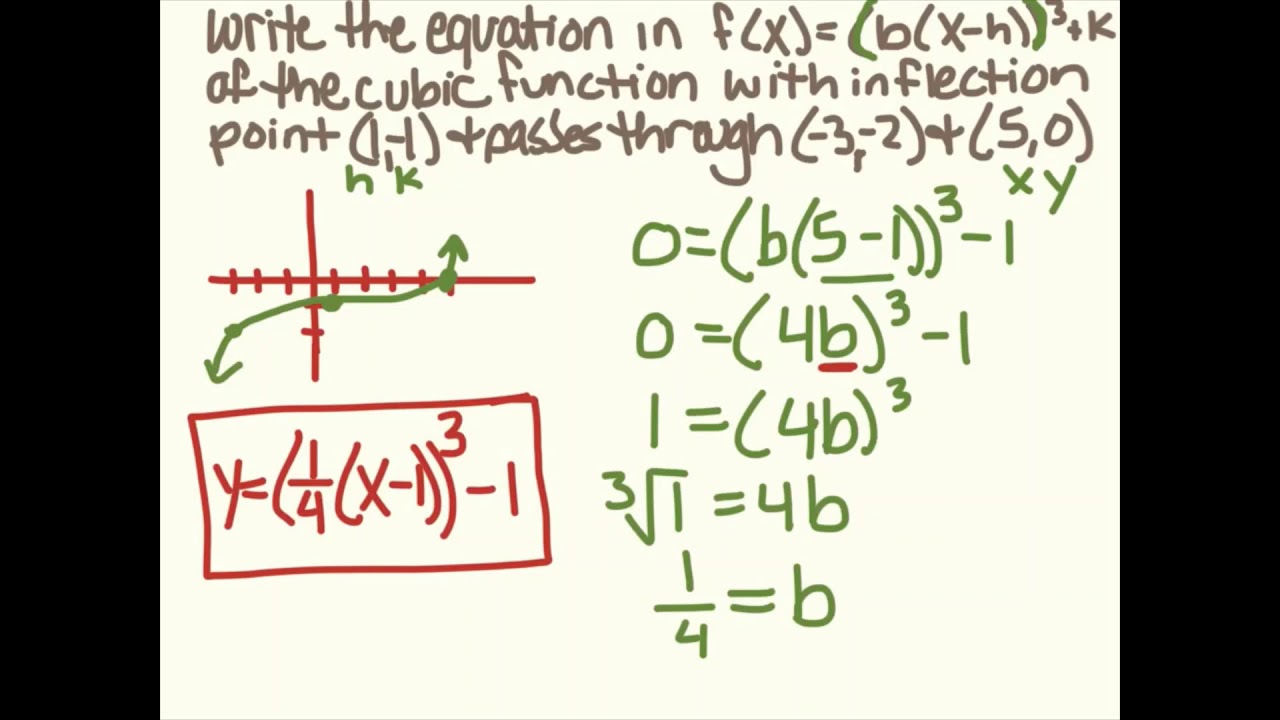 write the equation in f(x)=(b(x-h))³+k
of the cubic function with inflection
point (1,-1) + passes through (-3,-2) + (5,0)
h k
x y
0=(b(5-1))³-1
0=(4b)³-1
1=(4b)³
y=(1/4(x-1))³-1
³√1=4b
1/4=b